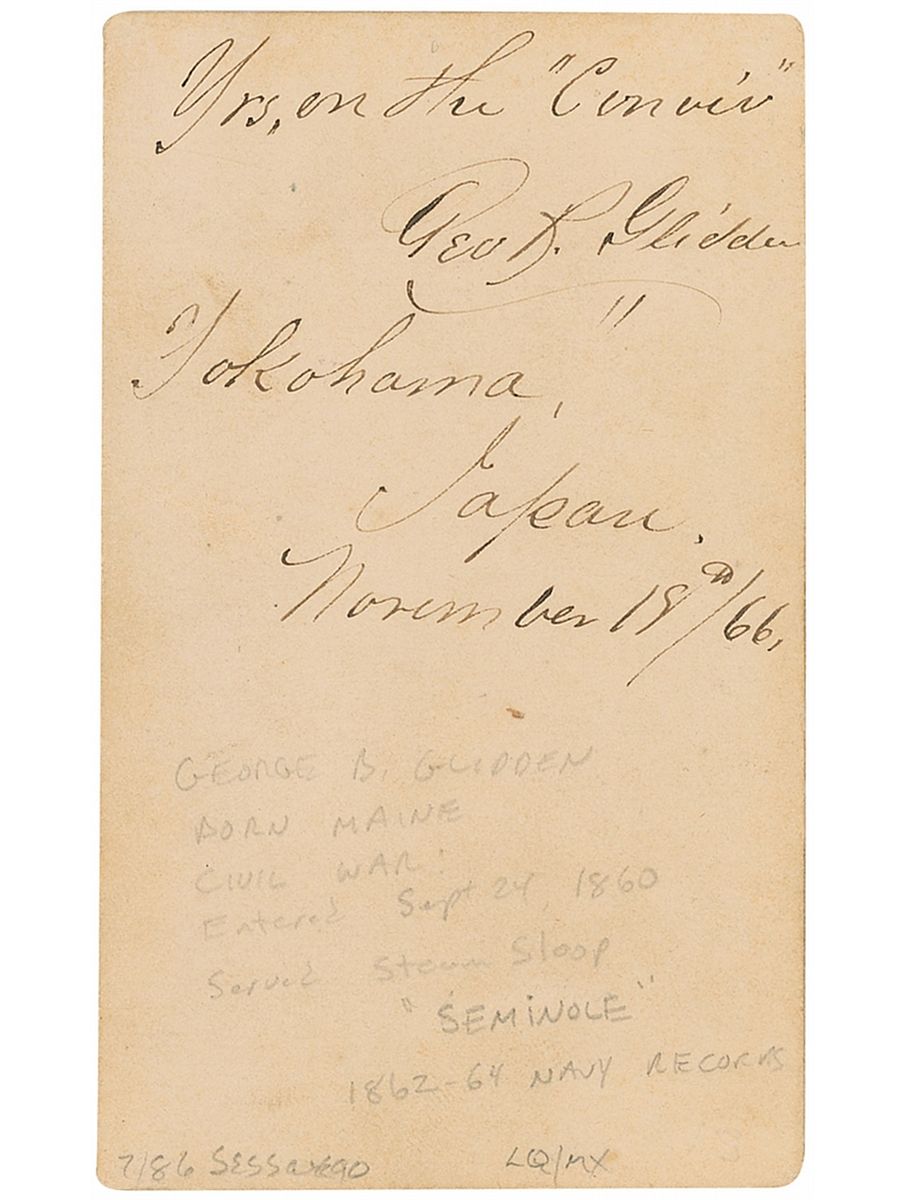 Yrs, on the "Conviv"
Geo B. Glidden
"
Yokohama,
Japan.
November 19th/66.
GEORGE B. GLIDDEN
BORN MAINE
CIVIL WAR:
Entered Sept 24, 1860
Served Steam Sloop
"SEMINOLE"
1862-64 NAVY RECORDS
7/86
LQ/MX